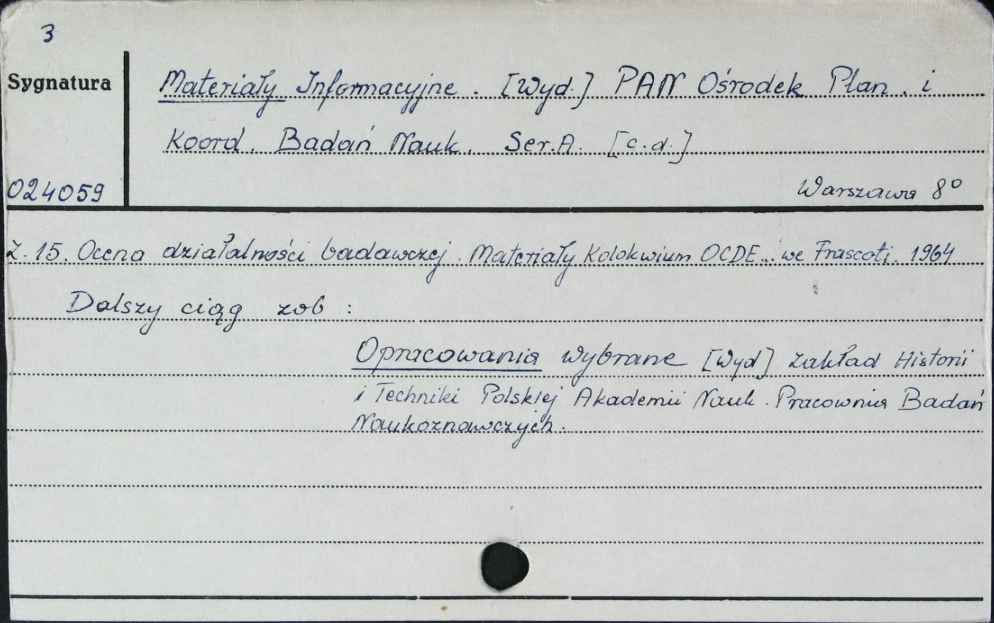 3
Sygnatura
Materiały Informacyjne. [Wyd.] PAN Ośrodek Plan. i
Koord. Badań Nauk. Ser.A. [c.d.]
024059
Warszawa 8°
Z. 15. Ocena działalności badawczej. Materiały Kolokwium OCDE... we Frascati. 1964
Dalszy ciąg zob :
Opracowania wybrane [Wyd] Zakład Historii
i Techniki Polskiej Akademii Nauk. Pracownia Badań
Naukoznawczych.